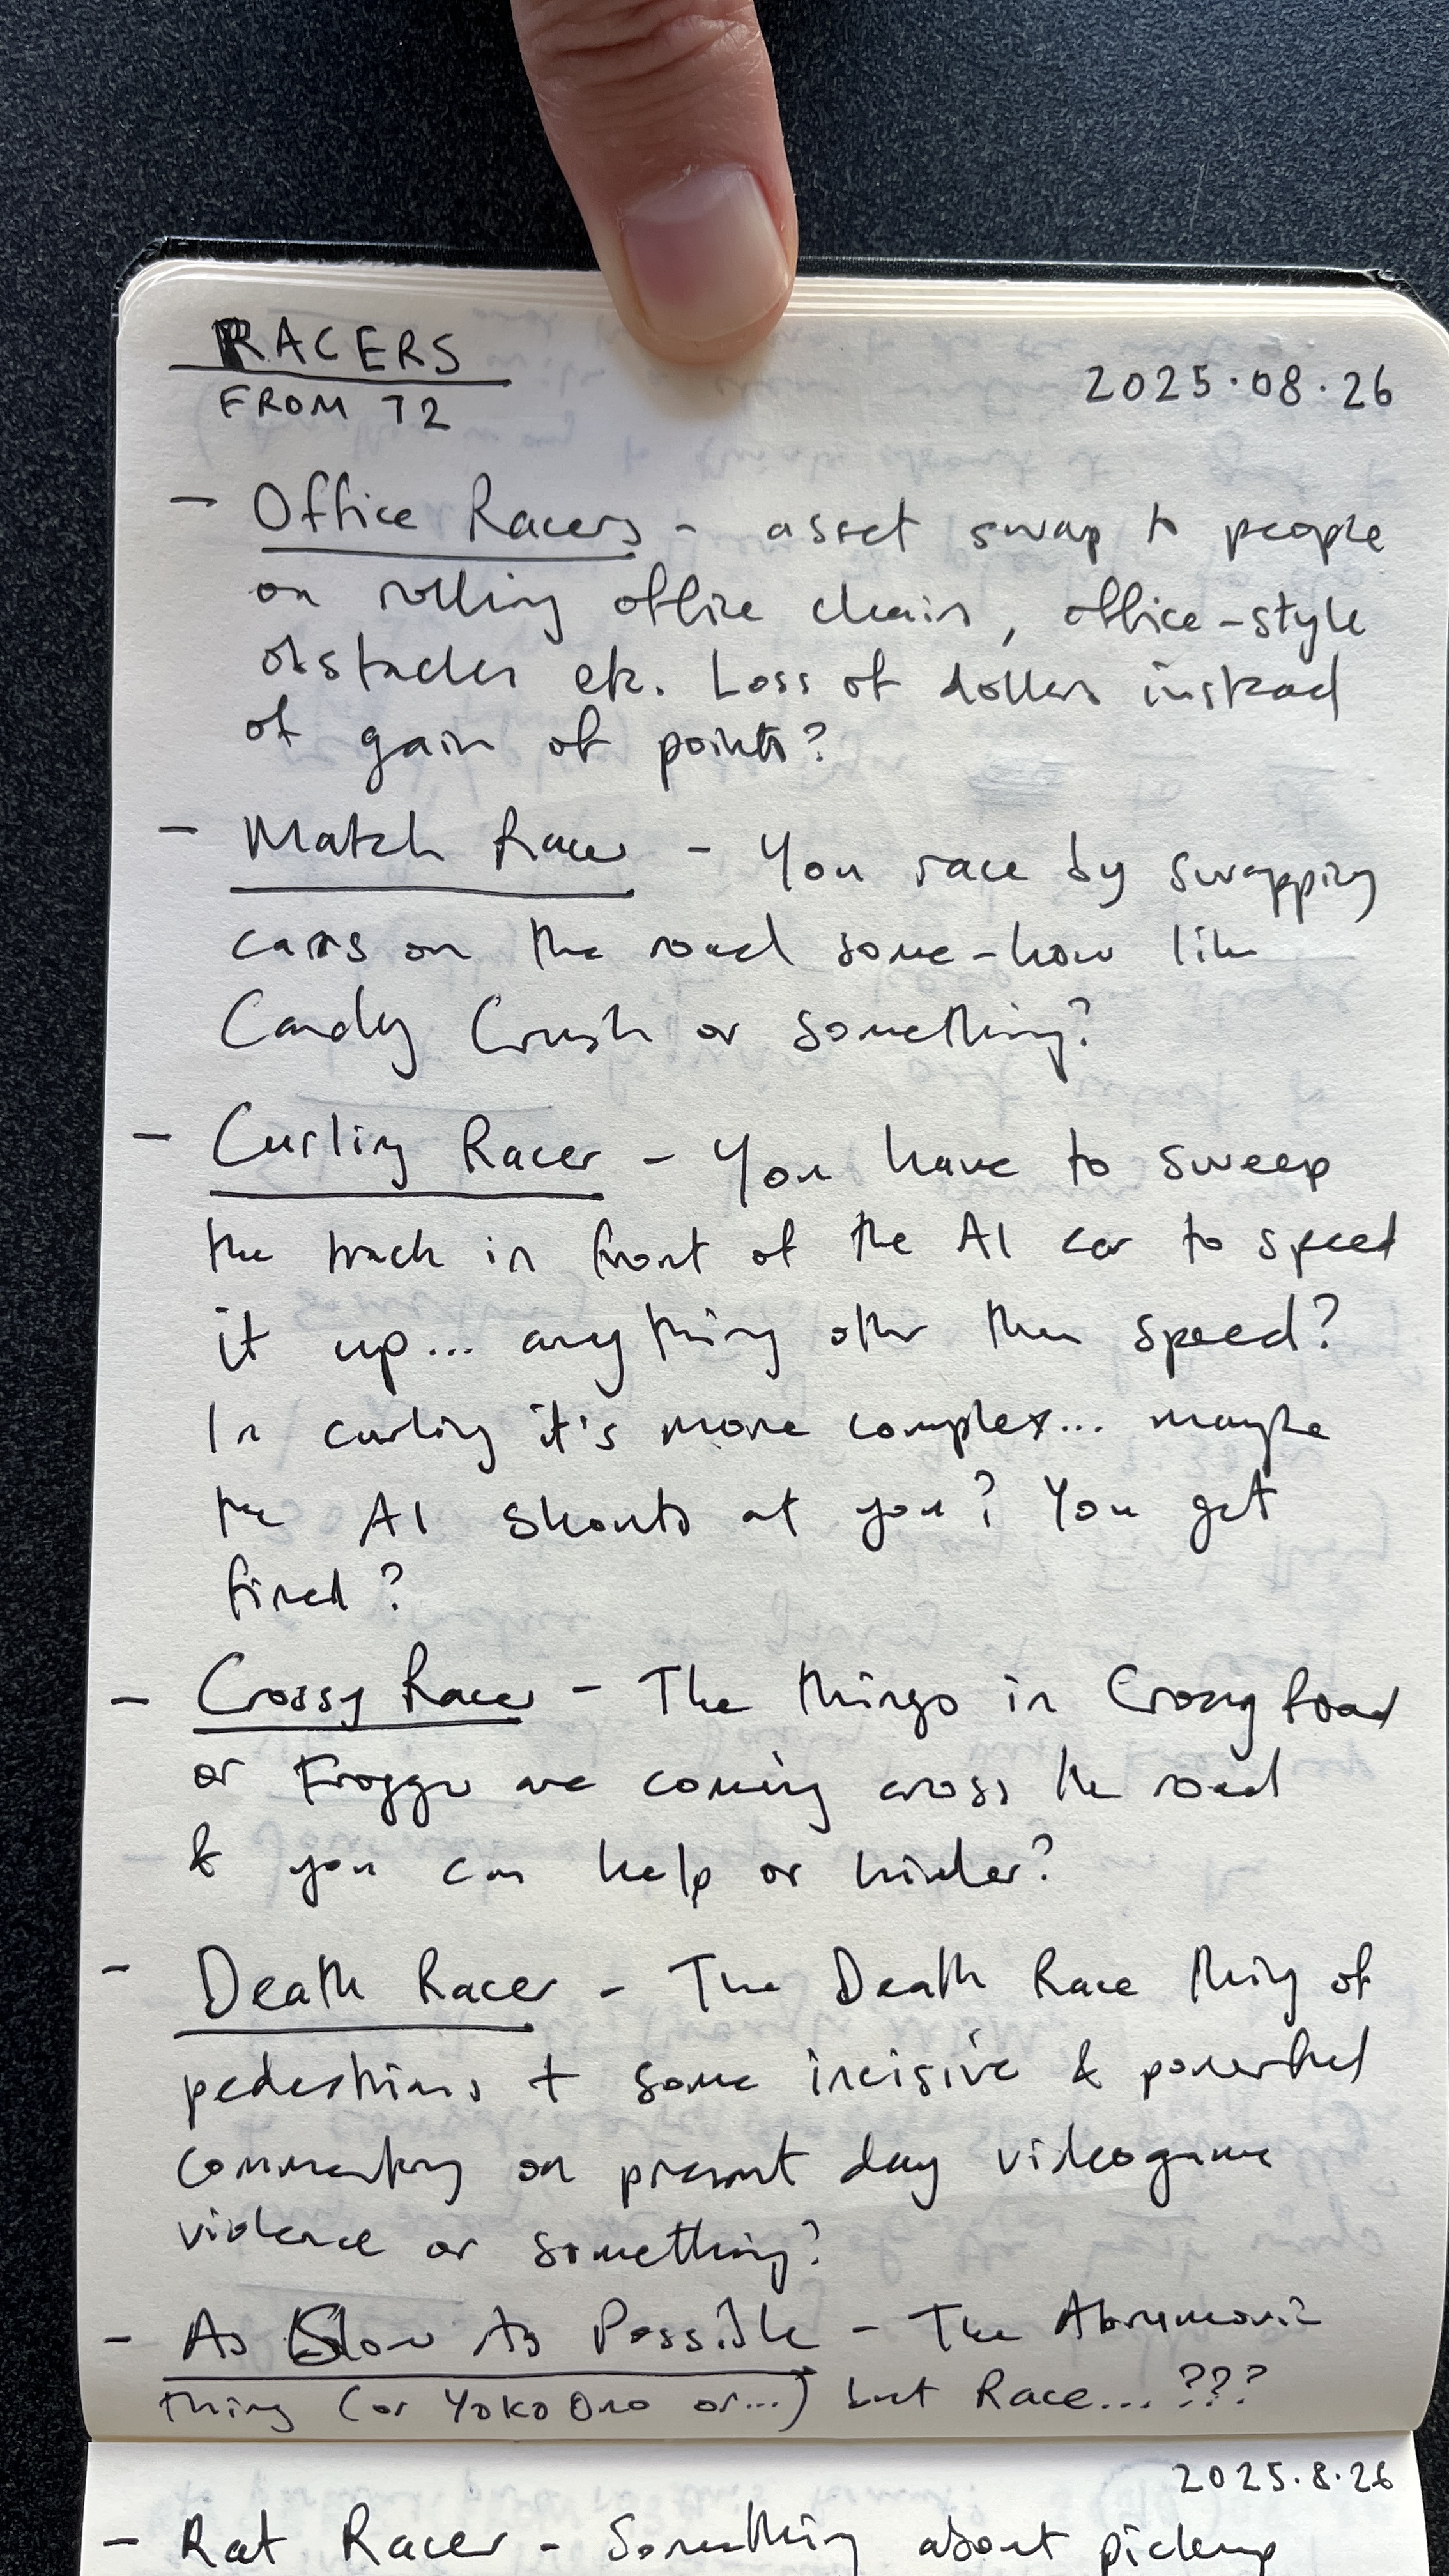 RACERS
FROM T2
2025.08.26
- Office Racers - asset swap to people
on rolling office chairs, office-style
obstacles etc. Loss of dollars instead
of gain of points?
- Match Racer - You race by swapping
cars on the road some-how like
Candy Crush or something?
- Curling Racer - You have to sweep
the track in front of the AI car to speed
it up... anything other than speed?
In curling it's more complex... maybe
the AI shouts at you? You get
fired?
- Crossy Racer - The things in Crossy Road
or Frogger are coming across the road
& you can help or hinder?
- Death Racer - The Death Race thing of
pedestrians + some incisive & powerful
commentary on present day videogame
violence or something?
- As Slow As Possible - The Abramovic
thing (or Yoko Ono or...) but Race...???
2025.8.26
- Rat Racer - Something about pickup